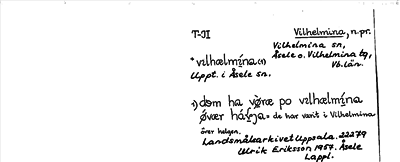 T-II Vilhelmina, n.pr.
Vilhelmina sn,
Åsele o. Vilhelmina tg,
Vb. län.
*vılhælmína (1)
Uppt. i Åsele sn.
1) dom ha vø̀ræ po vılhælmína
ǿvær hálja = de har varit i Vilhelmina
över helgen.
Landsmålsarkivet Uppsala. 22279
Ulrik Eriksson 1957. Åsele
Lappl.